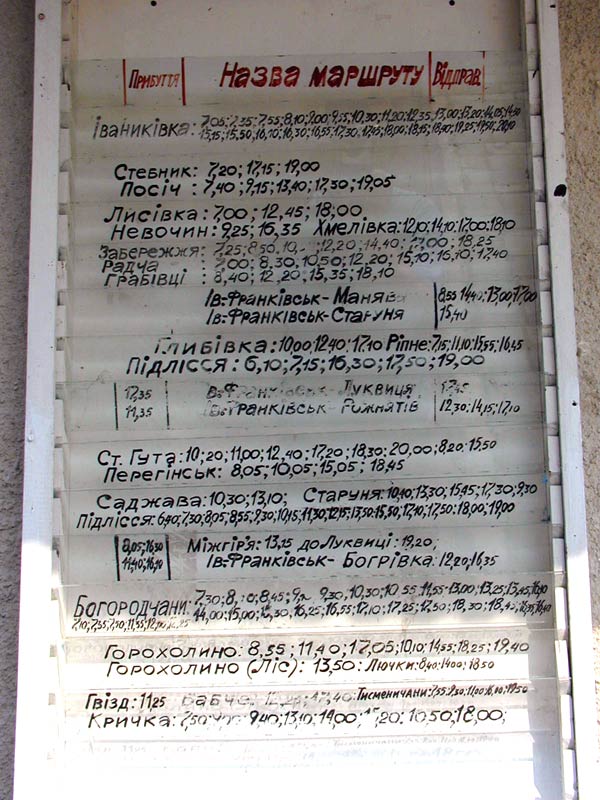 Прибуття Назва маршруту Відправ.
Іваниківка: 7,05; 7,35; 7,55; 8,10; 9,00; 9,55; 10,30; 11,20; 12,35; 13,00; 13,20; 14,05; 14,50
15,15; 15,50; 16,10; 16,30; 16,55; 17,30; 17,45; 18,00; 18,15; 18,40; 19,25; 19,50; 20,10
Стебник: 7,20; 17,15; 19,00
Посіч: 7,40; 9,15; 13,40; 17,30; 19,05
Лисівка: 7,00; 12,45; 18,00
Невочин: 9,25; 16,35 Хмелівка: 12,10; 14,10; 17,00; 18,10
Забережжя: 7,25; 8,50 12,20; 14,40; 17,00; 18,25
Радча 8,30; 10,50; 12,20; 15,10; 16,10; 17,40
Грабівці: 8,40; 12,20; 15,35; 18,10
Ів-Франківськ-Манява 8,55 14,40; 13,00; 17,00
Ів-Франківськ-Старуня 15,40
Глибівка: 10,00; 12,40; 17,10 Ріпне: 7,15; 11,10; 15,55; 16,45
Підлісся: 6,10; 7,15; 16,30; 17,50; 19,00
17,35 Ів-Франківськ-Луквиця 17,45
11,35 Ів-Франківськ-Рожнятів 12,30; 14,15; 17,10
Ст. Гута: 10,20; 11,00; 12,40; 17,20; 18,30; 20,00; 8,20; 15,50
Перегінськ: 8,05; 10,05; 15,05; 18,45
Саджава: 10,30; 13,10; Старуня: 10,40; 13,30; 15,45; 17,30; 9,30
Підлісся: 6,40; 7,30; 8,05; 8,55; 9,30; 10,15; 11,30; 12,15; 13,50; 15,50; 17,10; 17,50; 18,00; 19,00
8,05; 16,30 Міжгір'я: 13,15 до Луквиці; 19,20;
11,40; 16,10 Ів-Франківськ-Богрівка: 12,20; 16,35
Богородчани: 7,30; 8,45; 9,30; 10,30; 10,55 11,55; 13,00; 13,25; 13,45;
14,00; 15,00; 16,25; 16,55; 17,10; 17,25; 17,50; 18,30;
Горохолино: 8,55; 11,40; 17,05; 10,10; 14,55; 18,25; 19,40
Горохолино (Ліс): 13,50; Лючки: 8,40; 14,00; 18,50
Гвізд: 11,25 Бабче: 17,40; Тисменичани: 7,55; 9,50; 11,00; 16,00; 19,50
Кричка: 7,50 9,40; 13,10; 14,00; 17,20; 10,50; 18,00;